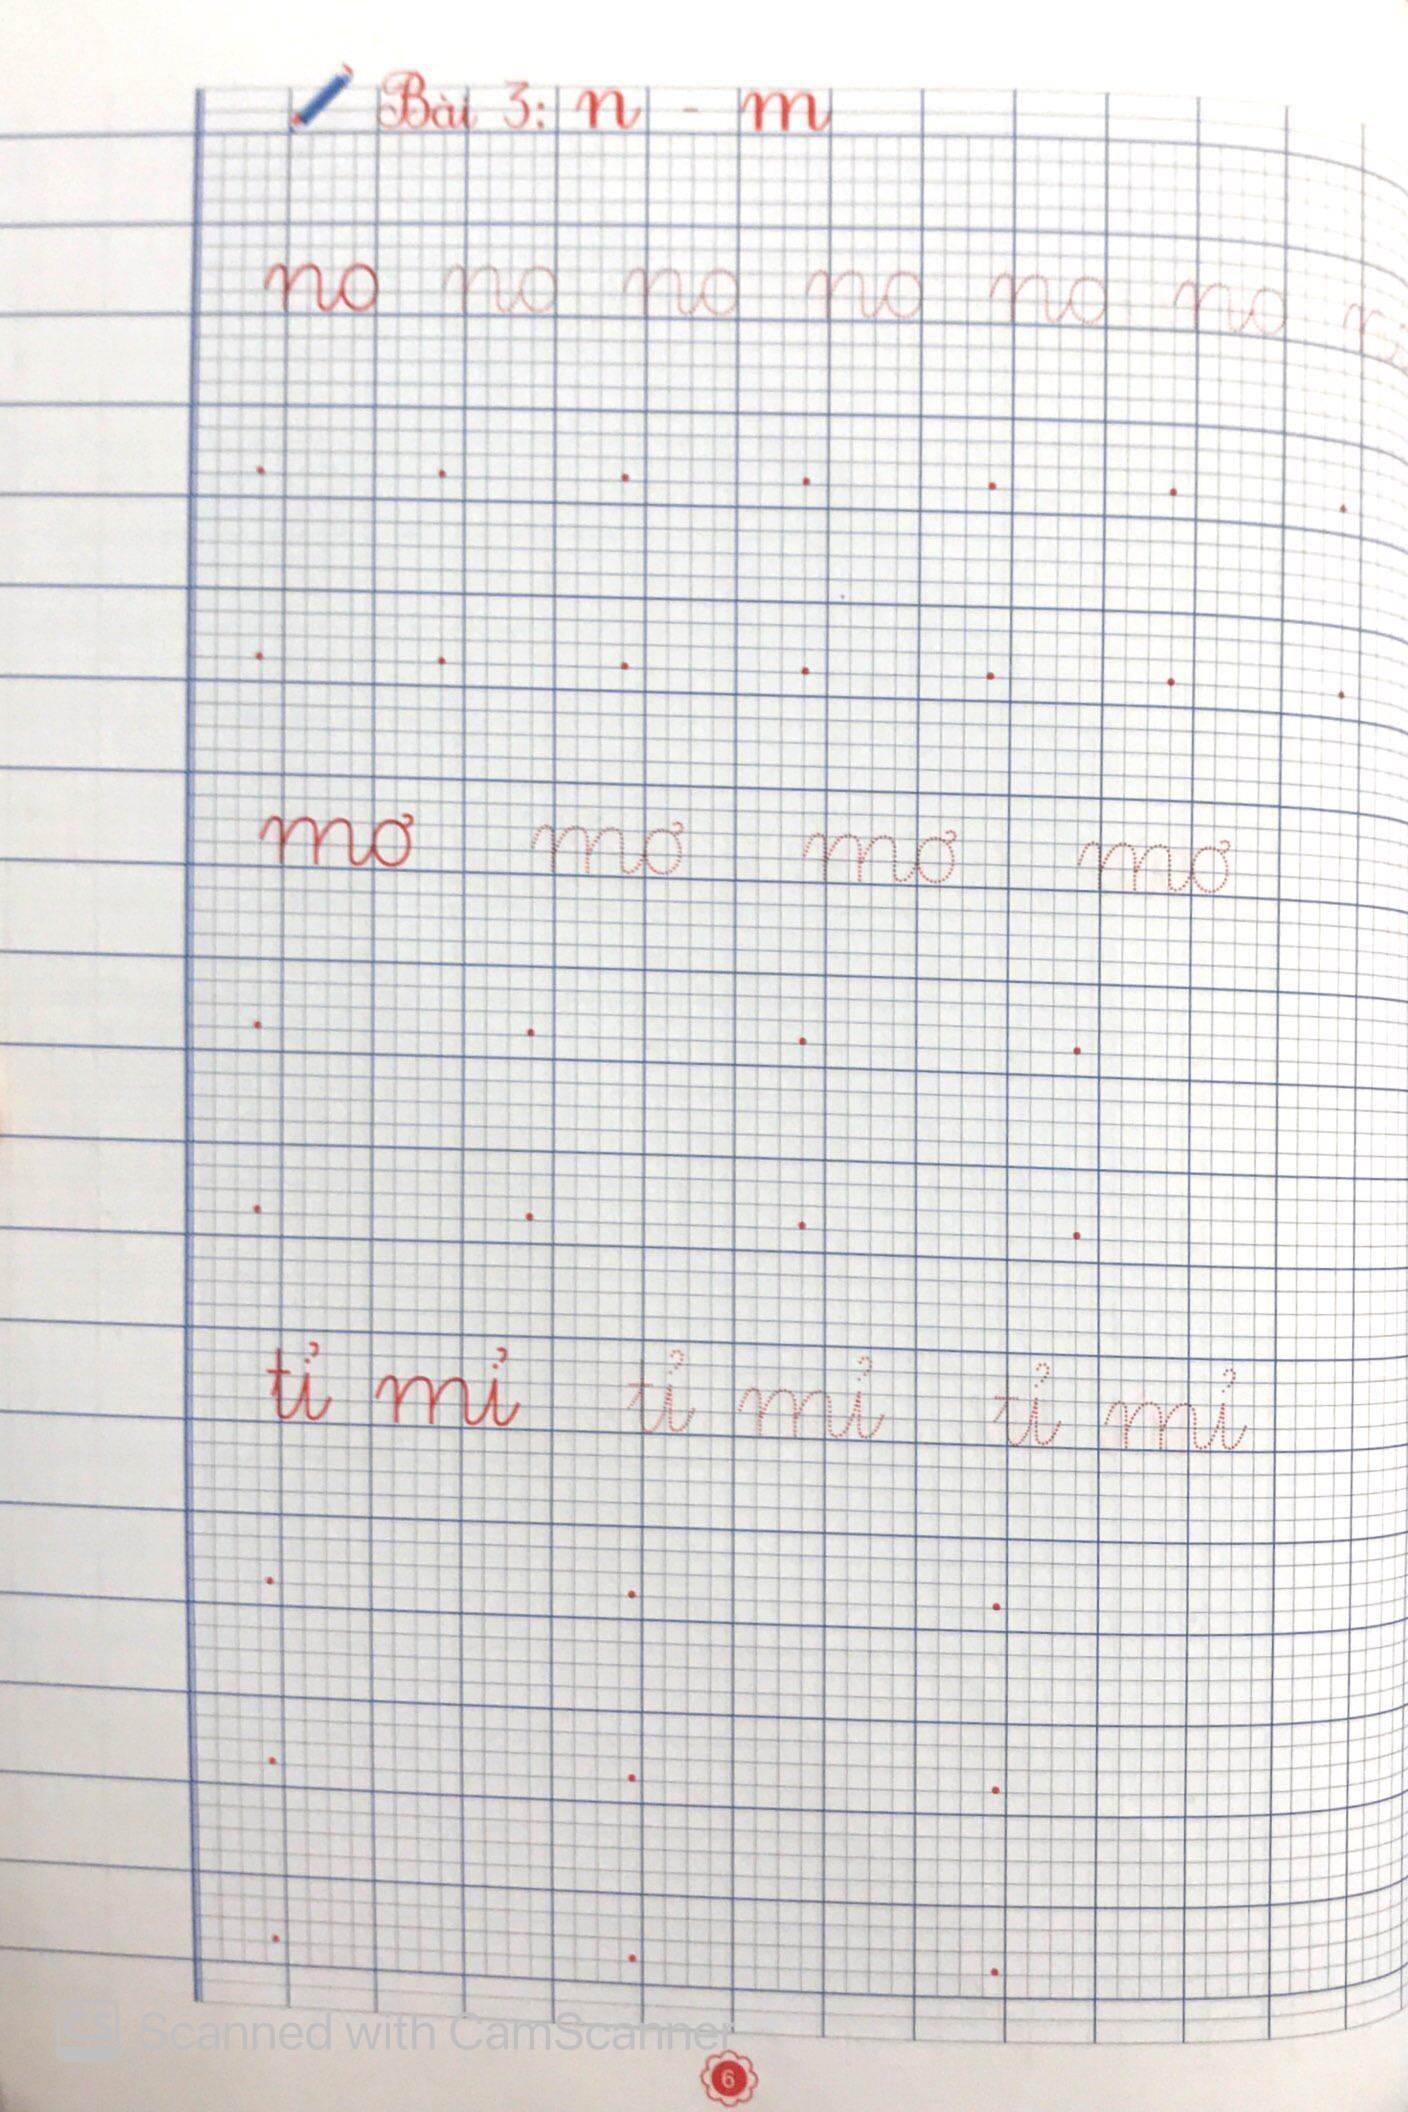 Bài 3: n - m
no no no no no no
mơ mơ mơ mơ
tỉ mỉ tỉ mỉ tỉ mỉ
CS Scanned with CamScanner
6